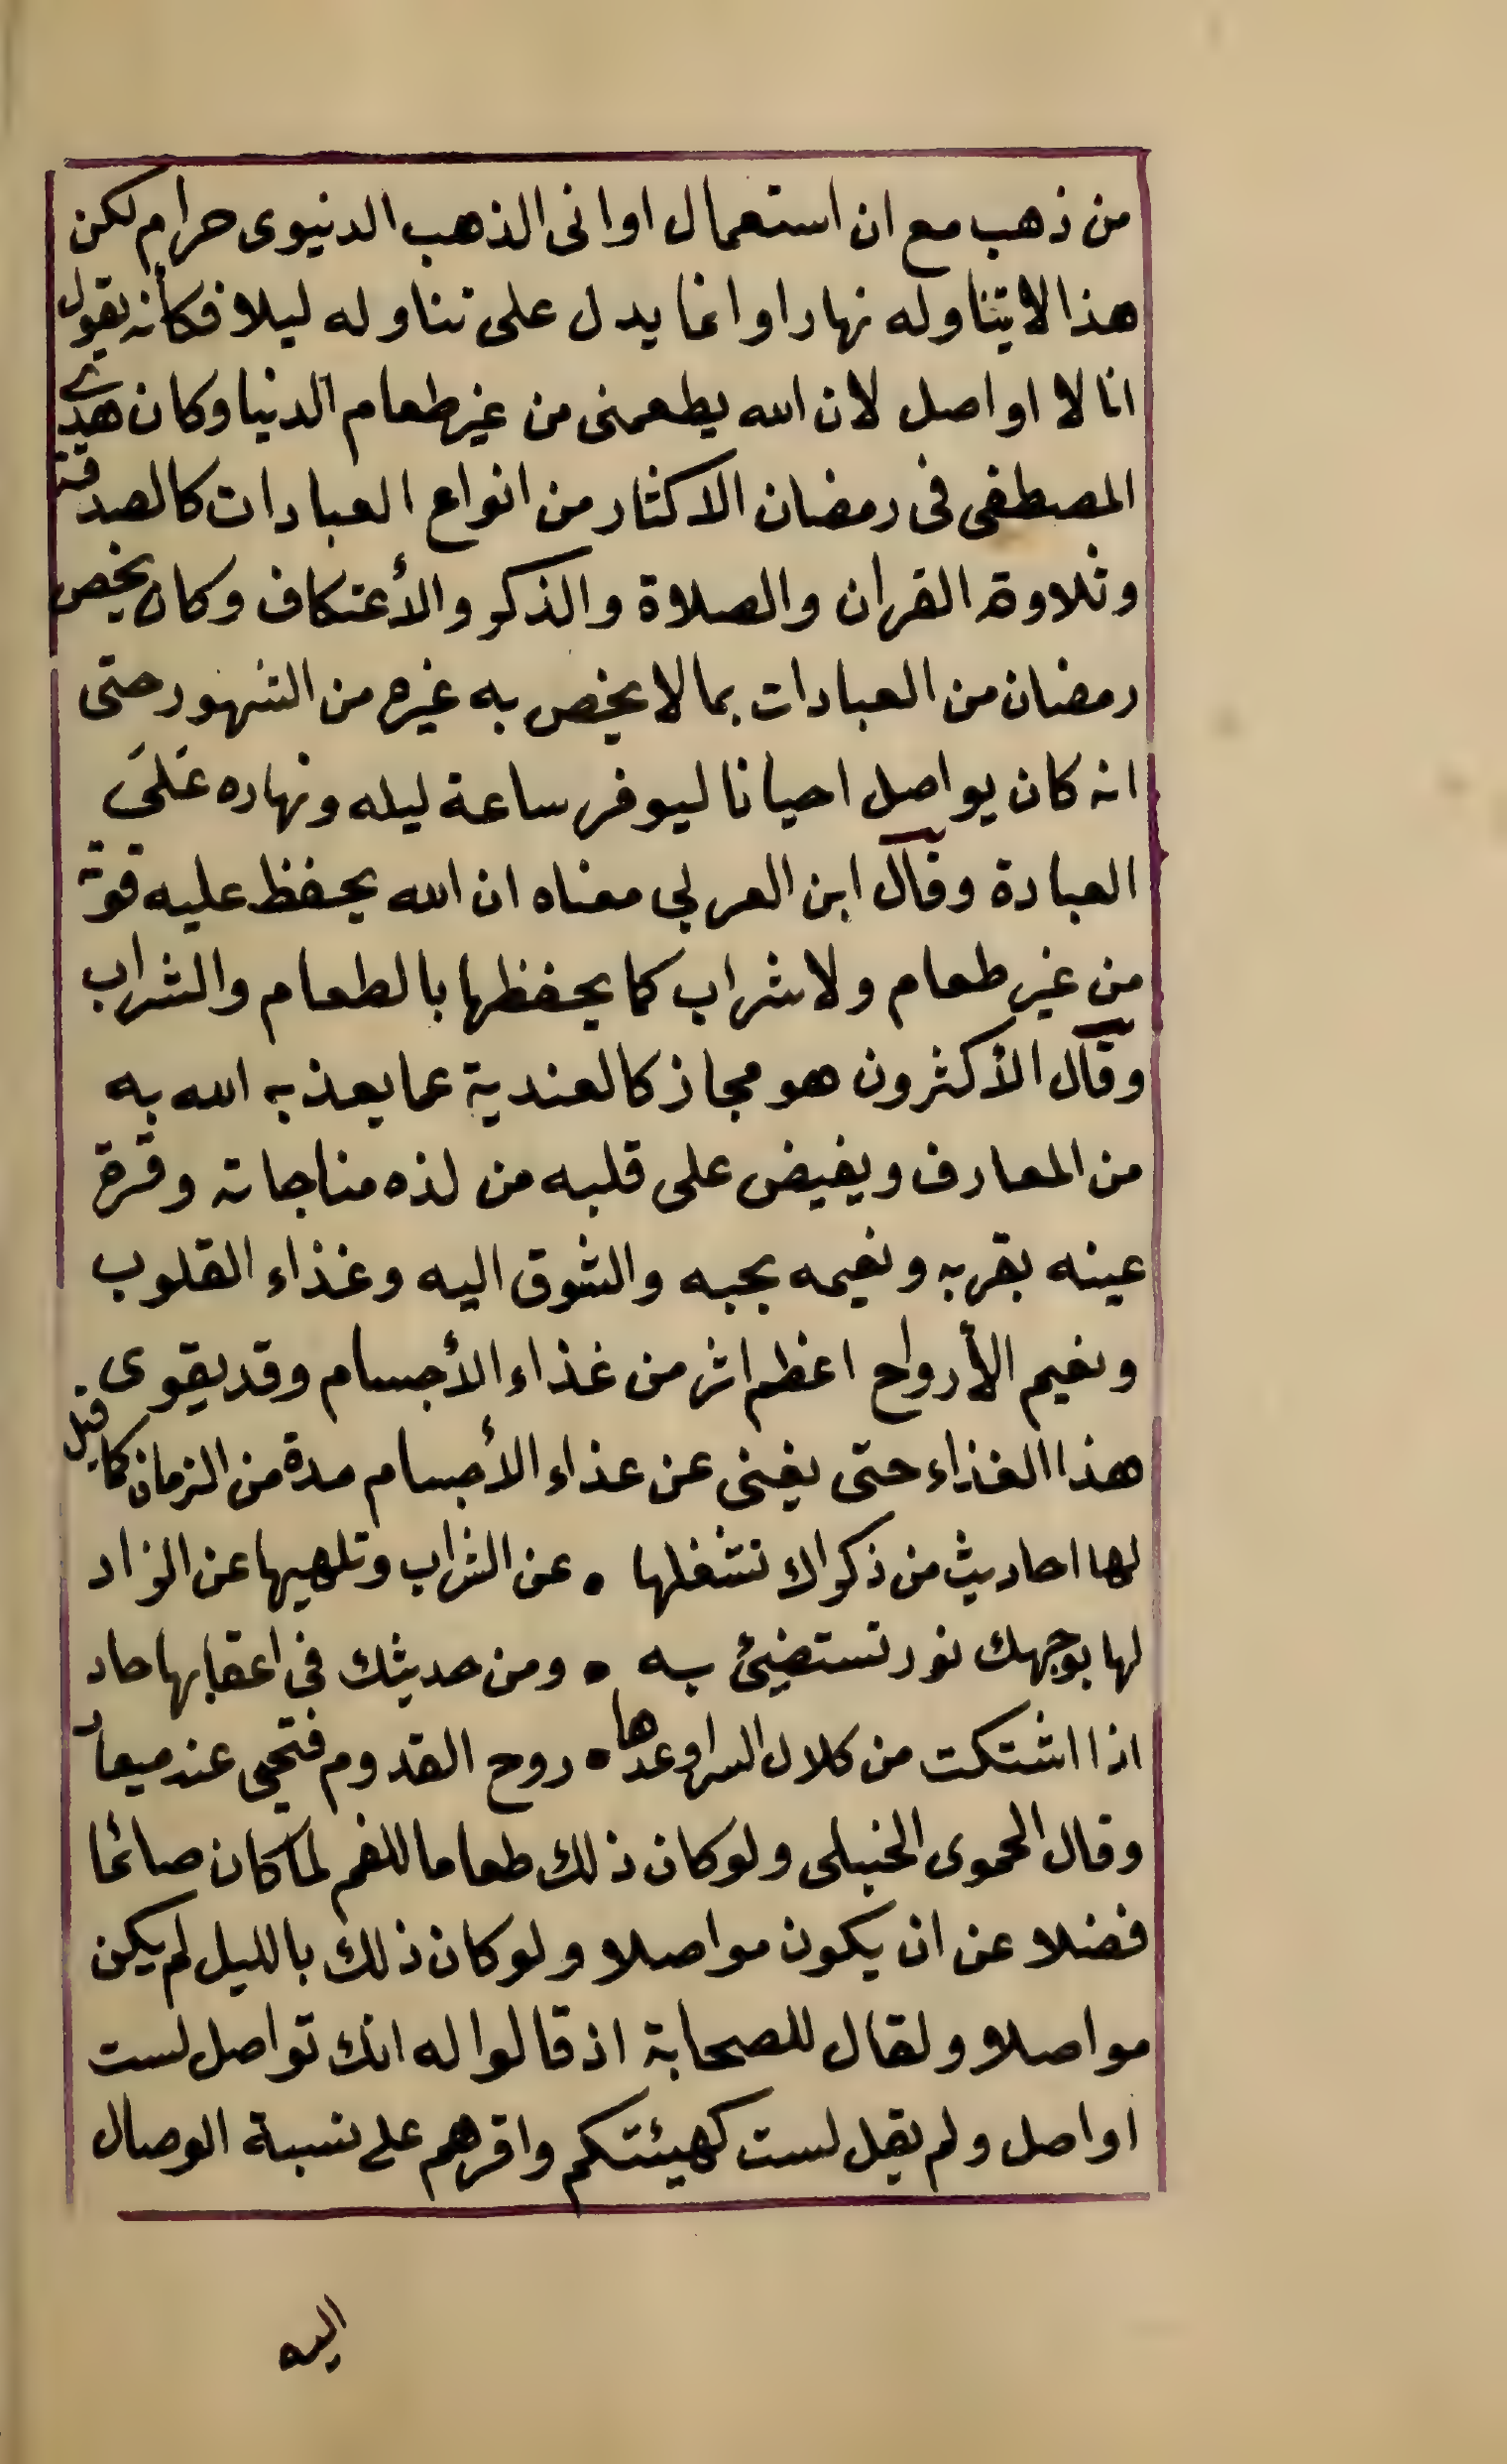 من ذهب مع ان استعمال اوانى الذهب الدنيوى حرام لكن
هذا لا يتناوله نهارا وانما يدل على تناوله ليلا فكأنه يقول
انا لا اواصل لان الله يطعمنى من غير طعام الدنيا وكان هدى
المصطفى فى رمضان الاكثار من انواع العبادات كالصدقة
وتلاوة القران والصلاة والذكر والأعتكاف وكان يخص
رمضان من العبادات بما لا يخص به غيره من الشهور حتى
انه كان يواصل احيانا ليوفر ساعة ليله ونهاره عَلىَ
العبادة وقال ابن العربى معناه ان الله يحفظ عليه قوته
من غير طعام ولا شراب كما يحفظها بالطعام والشراب
وقال الأكثرون هو مجاز كالعندية عما يعذبه الله به
من المعارف ويفيض على قلبه من لذه مناجاته وقرة
عينه بقربه ونعيمه بحبه والشوق اليه وغذاء القلوب
ونعيم الأرواح اعظم اثر من غذاء الأجسام وقد يقوى
هذا الغذاء حتى يغنى عن عذاء الأجسام مدة من الزمان كما قيل
لها احاديث من ذكراك تشغلها • عن الشراب وتلهيها عن الزاد
لها بوجهك نور تستضيئ به • ومن حديثك فى اعقابها حاد
اذا اشتكت من كلال السير اوعدها • روح القدوم فتحيى عند ميعاد
وقال الحموى الحنبلى ولو كان ذلك طعاما للفم لما كان صائما
فضلا عن ان يكون مواصلا ولو كان ذلك بالليل لم يكن
مواصلا ولقال للصحابة اذ قالوا له انك تواصل لست
اواصل ولم يقل لست كهيئتكم واقرهم على نسبة الوصال
اليه